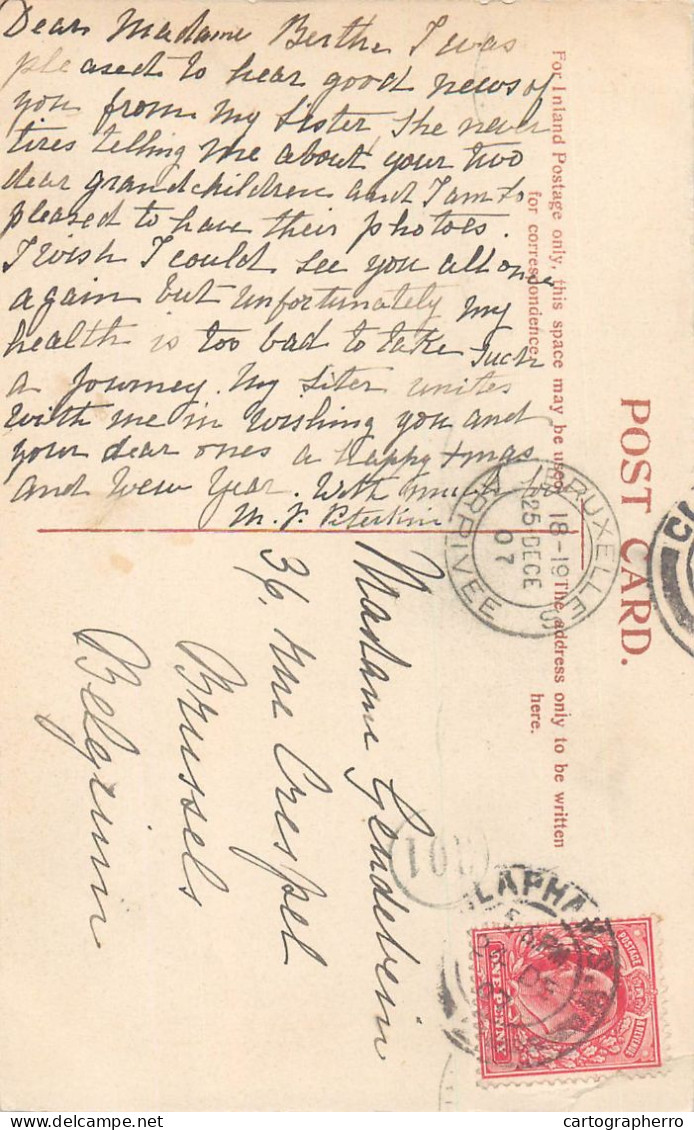 Dear Madame Berthe I was
pleased to hear good news of
you from my sister, she never
tires telling me about your two
dear grandchildren and I am so
pleased to have their photos.
I wish I could see you all once
again but unfortunately my
health is too bad to take such
a journey. My sister unites
with me in wishing you and
your dear ones a happy Xmas
and New Year. With much
For Inland Postage only, this space may be used
for correspondence.
POST CARD.
The address only to be written
here.
BRUXELLES
18-19
25 DECE
07
ARRIVEE
Madame Gendebien
36, Rue Crespel
Brussels
Belgium
101
CLAPHA
POSTAGE
ONE PENNY
cartographero.com